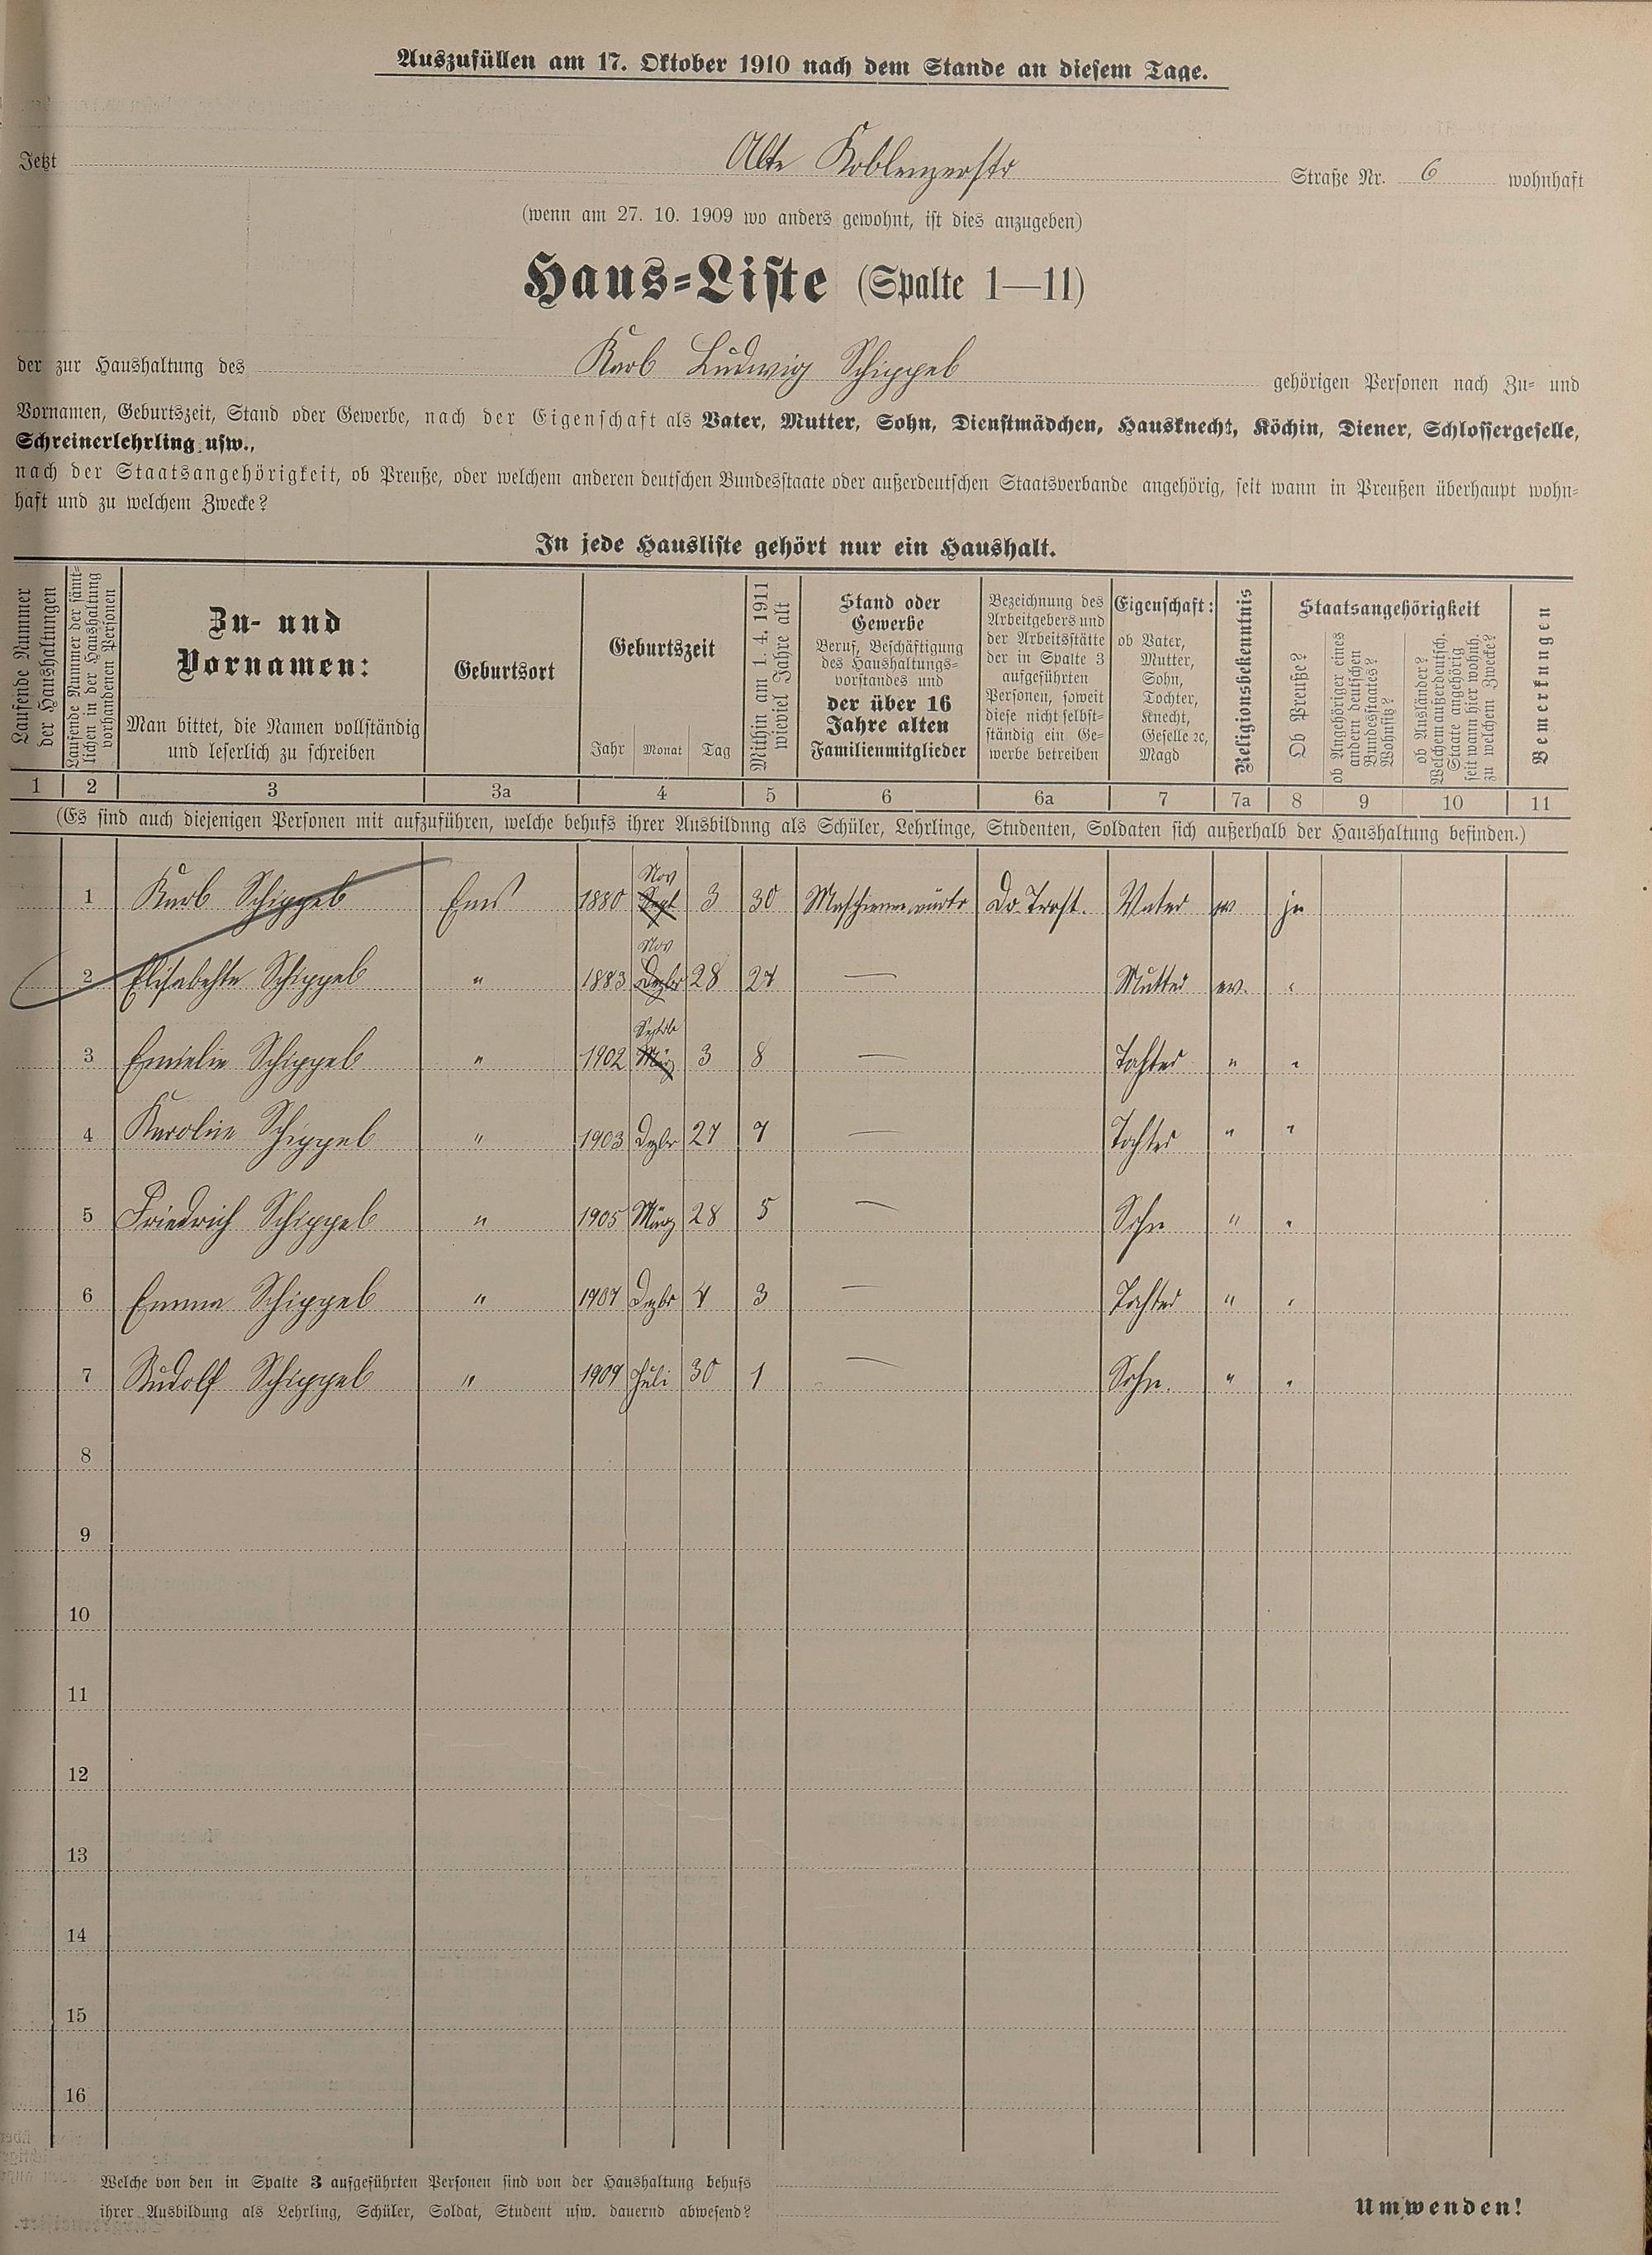 Auszufüllen am 17. Oktober 1910 nach dem Stande an diesem Tage.
Jetzt Alte Koblenzerstr Straße Nr. 6 wohnhaft
(wenn am 27. 10. 1909 wo anders gewohnt, ist dies anzugeben)
Haus-Liste (Spalte 1—11)
der zur Haushaltung des Karl Ludwig Schippel gehörigen Personen nach Zu- und
Vornamen, Geburtszeit, Stand oder Gewerbe, nach der Eigenschaft als Vater, Mutter, Sohn, Dienstmädchen, Hausknecht, Köchin, Diener, Schlossergeselle,
Schreinerlehrling usw.,
nach der Staatsangehörigkeit, ob Preuße, oder welchem anderen deutschen Bundesstaate oder außerdeutschen Staatsverbande angehörig, seit wann in Preußen überhaupt wohn-
haft und zu welchem Zwecke?
In jede Hausliste gehört nur ein Haushalt.
Laufende Nummer
der Haushaltungen
Laufende Nummer der sämt-
lichen in der Haushaltung
vorhandenen Personen
Zu- und
Vornamen:
Man bittet, die Namen vollständig
und leserlich zu schreiben
Geburtsort
Geburtszeit
Jahr Monat Tag
Mithin am 1. 4. 1911
wieviel Jahre alt
Stand oder
Gewerbe
Beruf, Beschäftigung
des Haushaltungs-
vorstandes und
der über 16
Jahre alten
Familienmitglieder
Bezeichnung des
Arbeitgebers und
der Arbeitsstätte
der in Spalte 3
aufgeführten
Personen, soweit
diese nicht selbst-
ständig ein Ge-
werbe betreiben
Eigenschaft:
ob Vater,
Mutter,
Sohn,
Tochter,
Knecht,
Geselle ec,
Magd
Religionsbekenntnis
Staatsangehörigkeit
Ob Preuße?
ob Angehöriger eines
andern deutschen
Bundesstaates?
Wohnsitz?
ob Ausländer?
Welchem außerdeutsch.
Staate angehörig
seit wann hier wohnh.
zu welchem Zwecke?
Bemerkungen
1 2 3 3a 4 5 6 6a 7 7a 8 9 10 11
(Es sind auch diejenigen Personen mit aufzuführen, welche behufs ihrer Ausbildung als Schüler, Lehrlinge, Studenten, Soldaten sich außerhalb der Haushaltung befinden.)
Nov
1 Karl Schippel Ems 1880 Sept 3 30 Maschinenwärter Vater ev ja
Nov
2 Elisabehte Schippel " 1883 Dezbr 28 27 — Mutter ev. "
3 Emielie Schippel " 1902 März 3 8 — Tochter " "
4 Karoline Schippel " 1903 Dezbr 27 7 — Tochter " "
5 Friedrich Schippel " 1905 März 28 5 — Sohn " "
6 Emma Schippel " 1907 Dezbr 4 3 — Tochter " "
7 Rudolf Schippel " 1909 Juli 30 1 — Sohn. " "
8
9
10
11
12
13
14
15
16
Welche von den in Spalte 3 aufgeführten Personen sind von der Haushaltung behufs
ihrer Ausbildung als Lehrling, Schüler, Soldat, Student usw. dauernd abwesend?
Umwenden!